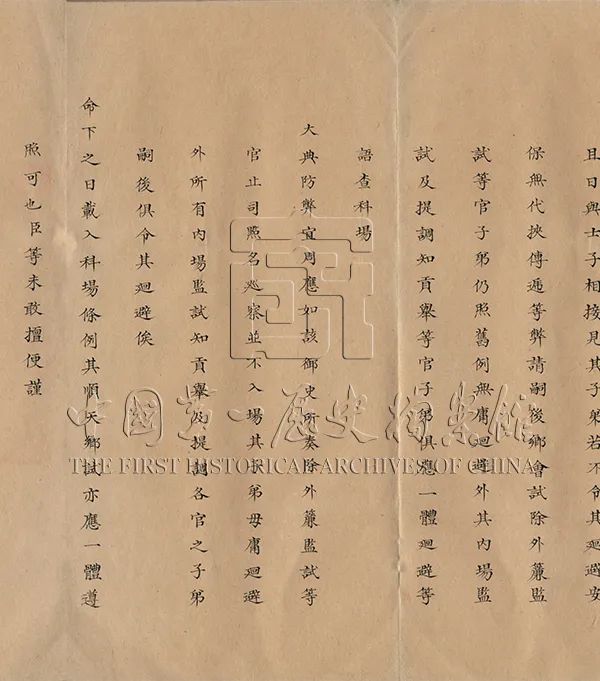 且日與士子相接見其子弟若不令其迴避安
保無代挾傳遞等弊請嗣後鄉會試除外簾監
試等官子弟仍照舊例無庸迴避外其內場監
試及提調知貢舉等官子弟俱應一體迴避等
語查科場
大典防弊宜周應如該御史所奏除外簾監試等
官止司照名巡察並不入場其子弟毋庸迴避
外所有內場監試知貢舉及提調各官之子弟
嗣後俱令其迴避俟
命下之日載入科場條例其順天鄉試亦應一體遵
照可也臣等未敢擅便謹
中國第一歷史檔案館
THE FIRST HISTORICAL ARCHIVES OF CHINA